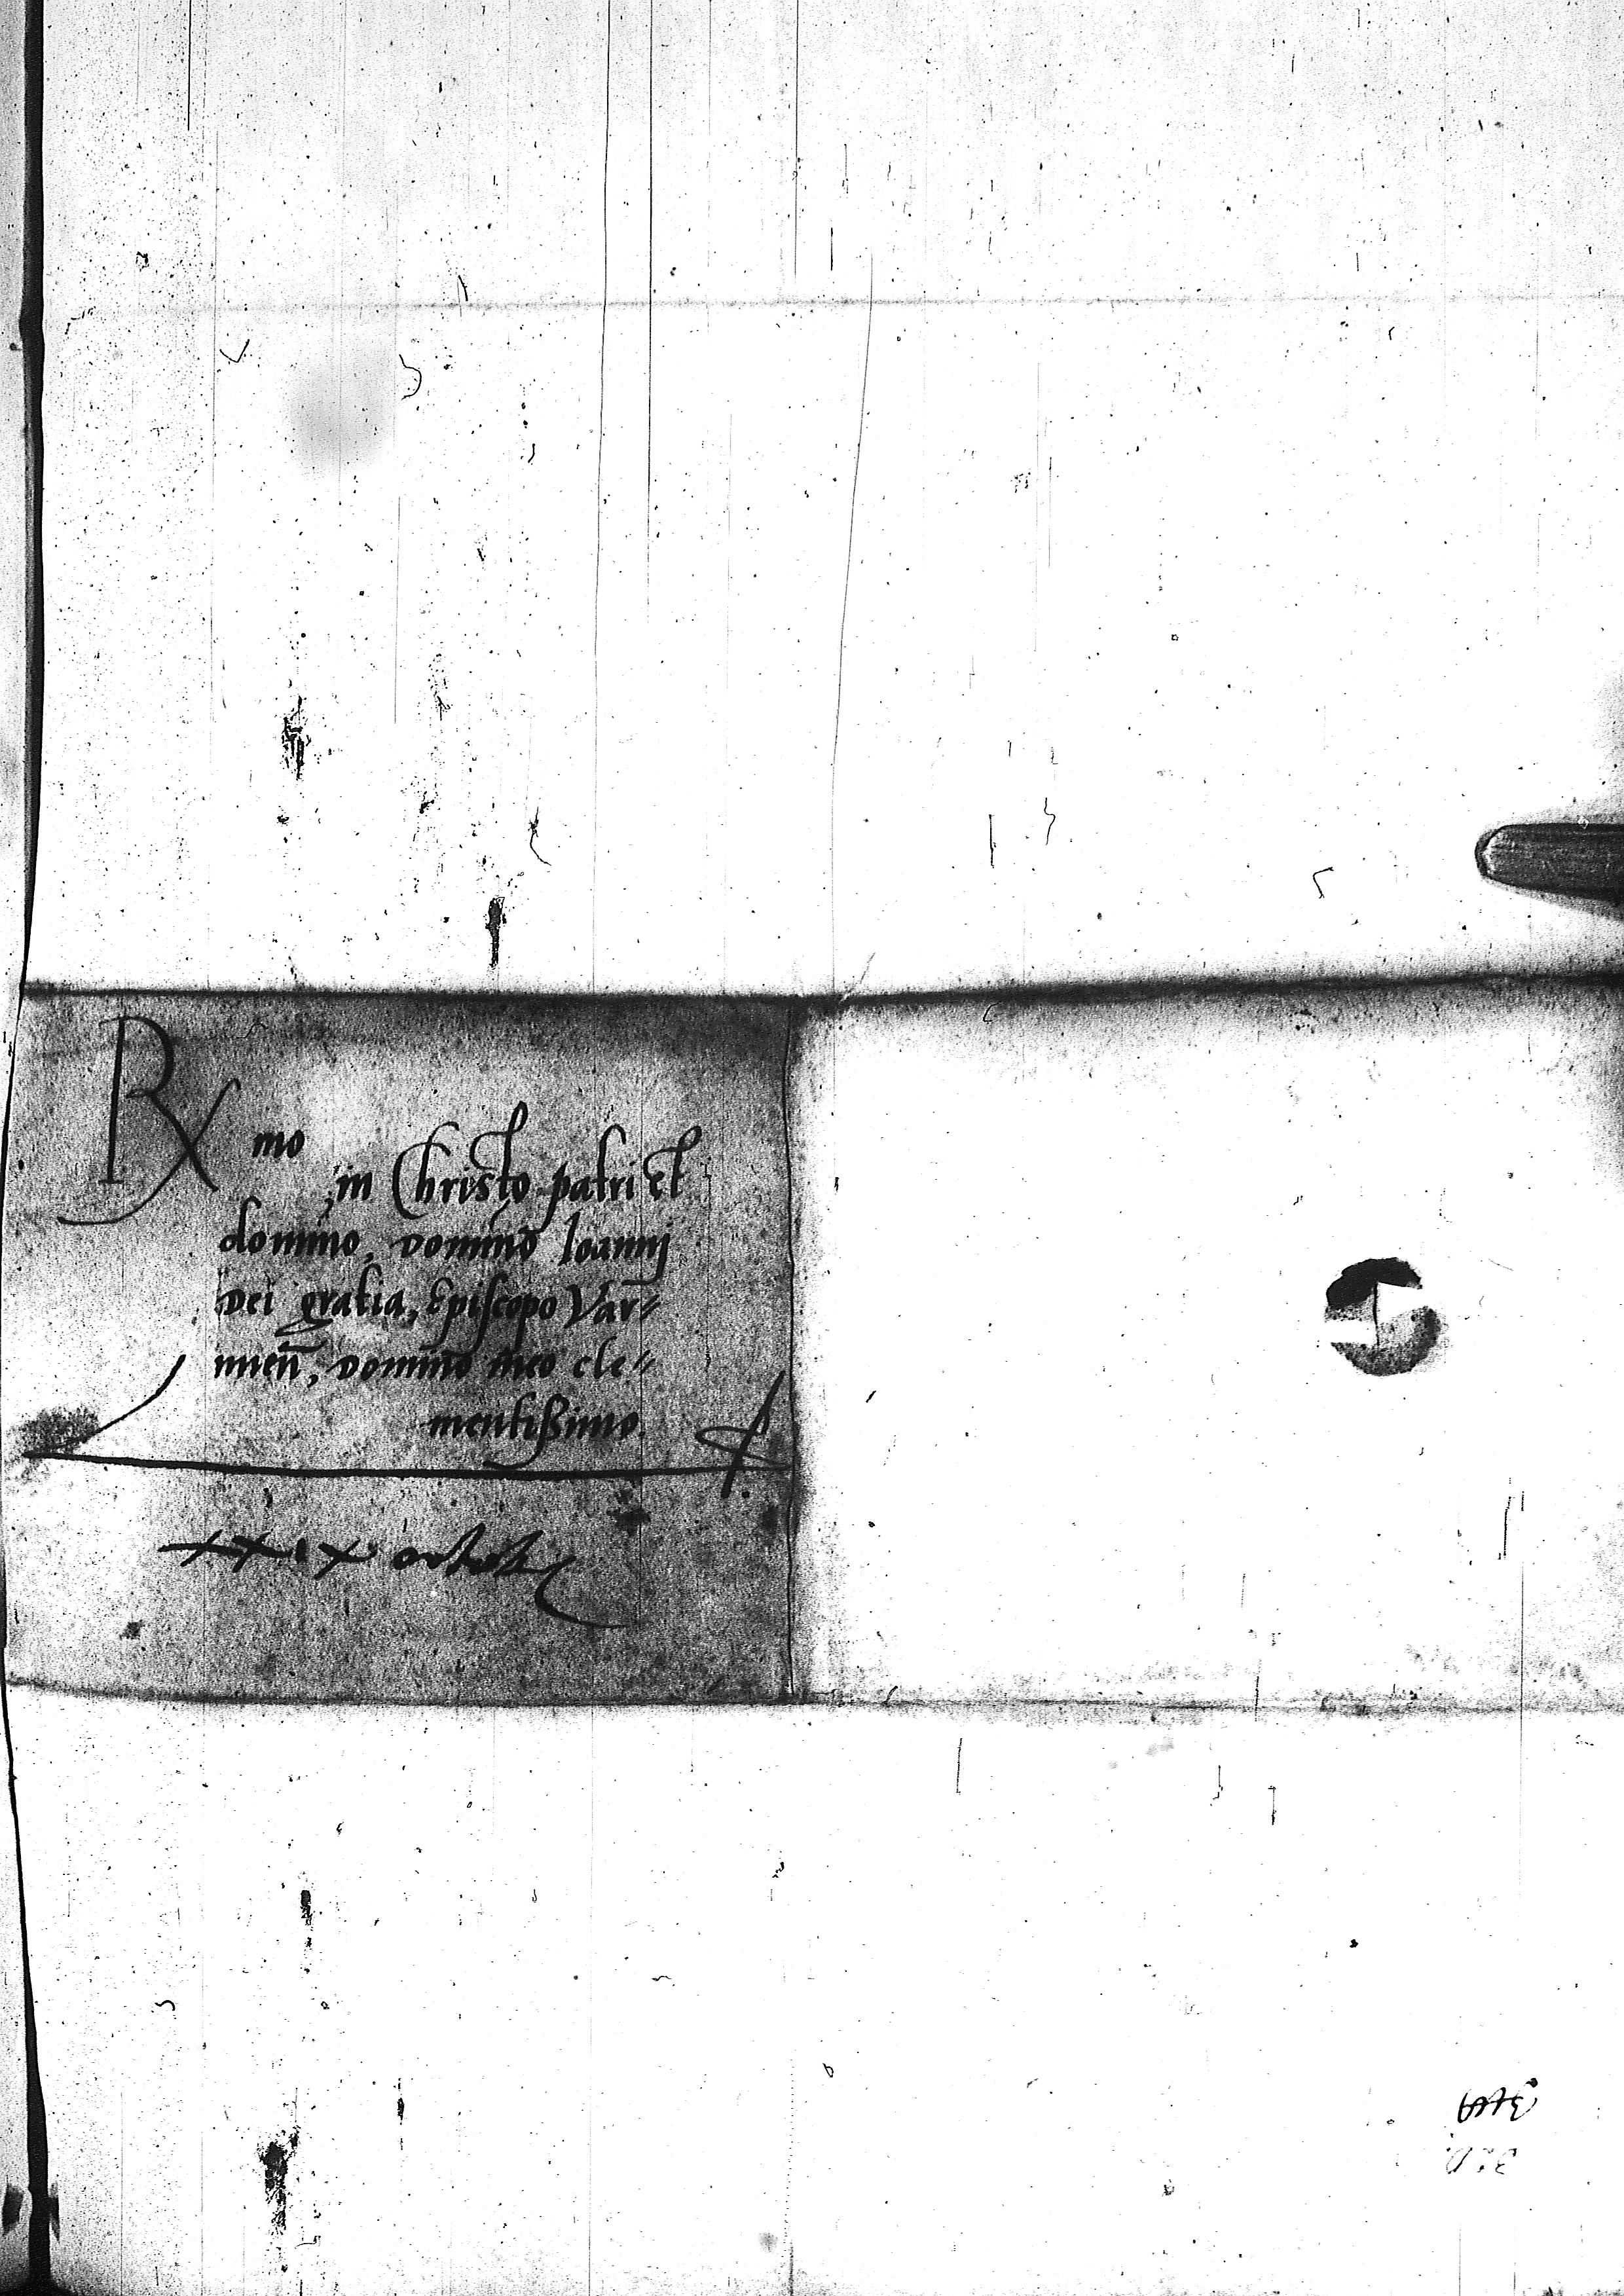 R mo
in Christo patri et
domino, domino Ioannj
Dei gratia, Episcopo Var=
mien̄, domino meo cle=
mentißimo.
xxix octobris